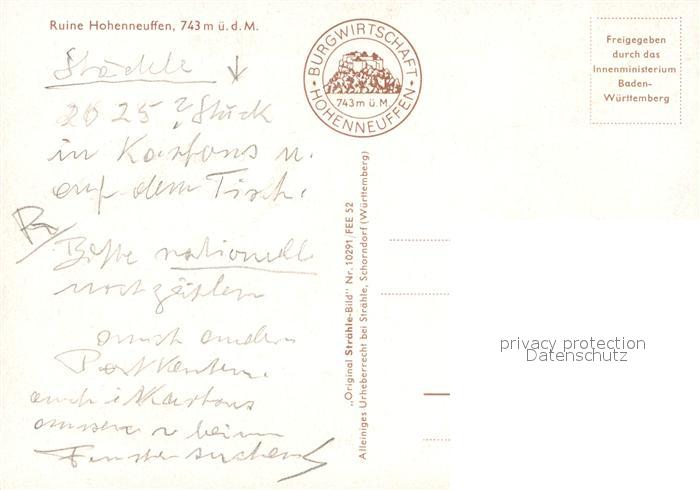 Ruine Hohenneuffen, 743 m ü. d. M.
BURGWIRTSCHAFT
743 m ü. M.
HOHENNEUFFEN
Freigegeben
durch das
Innenministerium
Baden-
Württemberg
25 ? Stück
in Kartons u.
auf dem Tisch.
Bitte
nachzählen
auch andere
Postkarten.
auch i Kartons
beim
Fenster suchen
„Original Strähle-Bild" Nr. 10291/FEE 52
Alleiniges Urheberrecht bei Strähle, Schorndorf (Württemberg)
privacy protection
Datenschutz